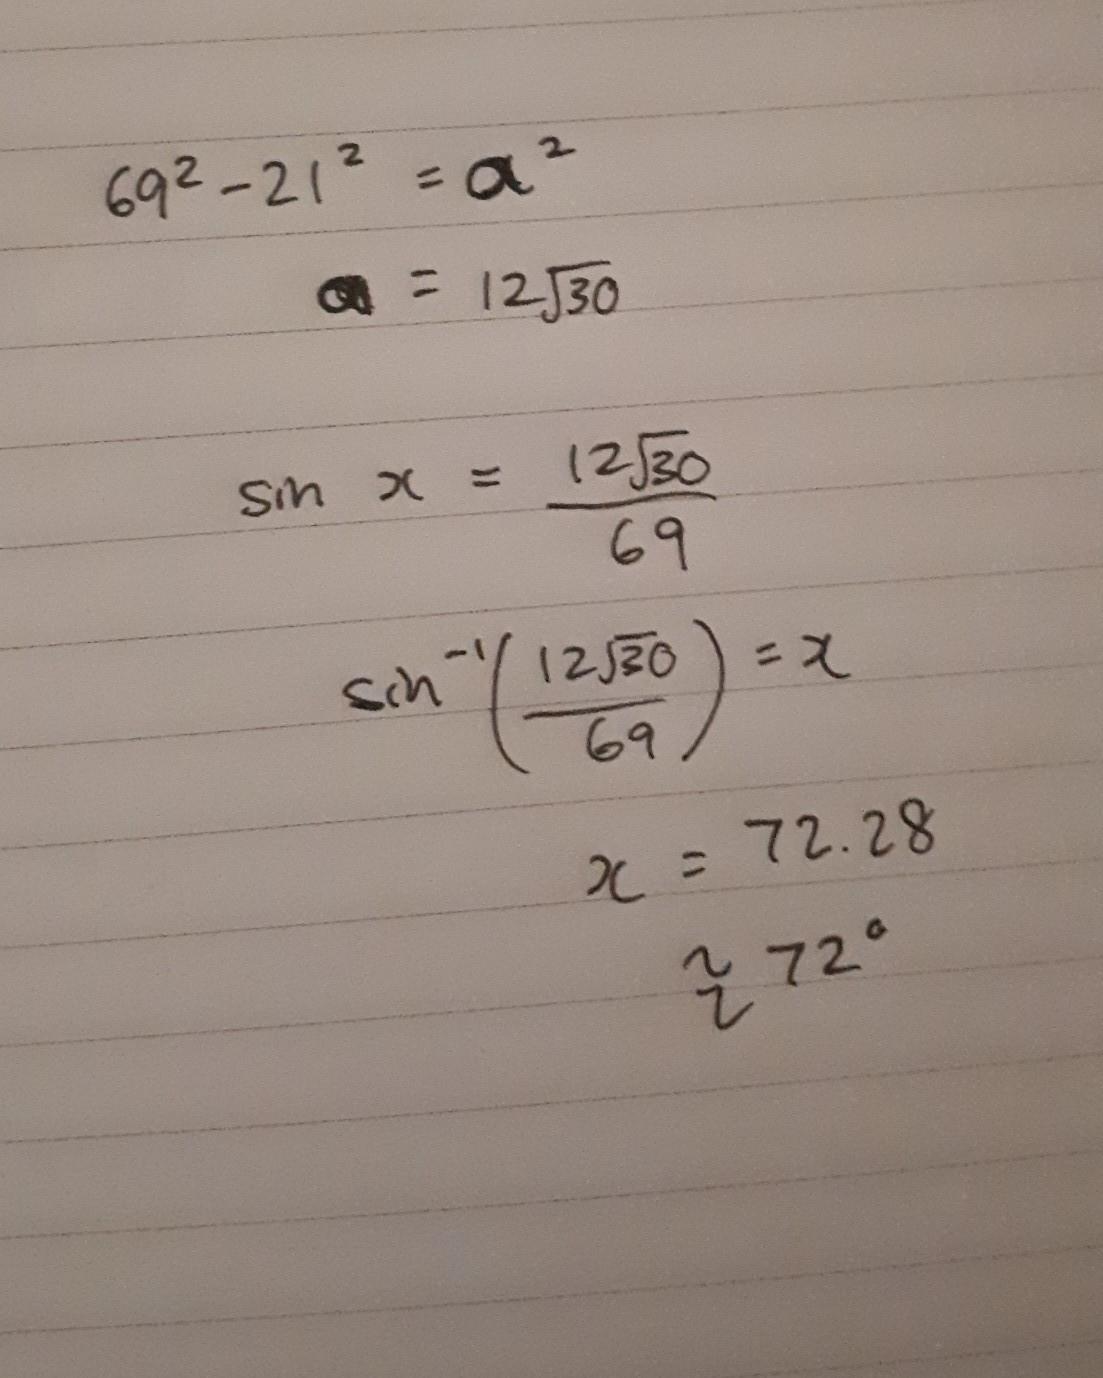 69² - 21² = a²
a = 12√30
sin x = 12√30/69
sin⁻¹(12√30/69) = x
x = 72.28
≈ 72°